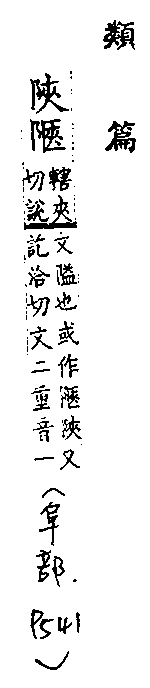 類篇
陜陿
轄夾
切說
文隘也或作陿陜又
訖洽切文二重音一
(阜部.P541)